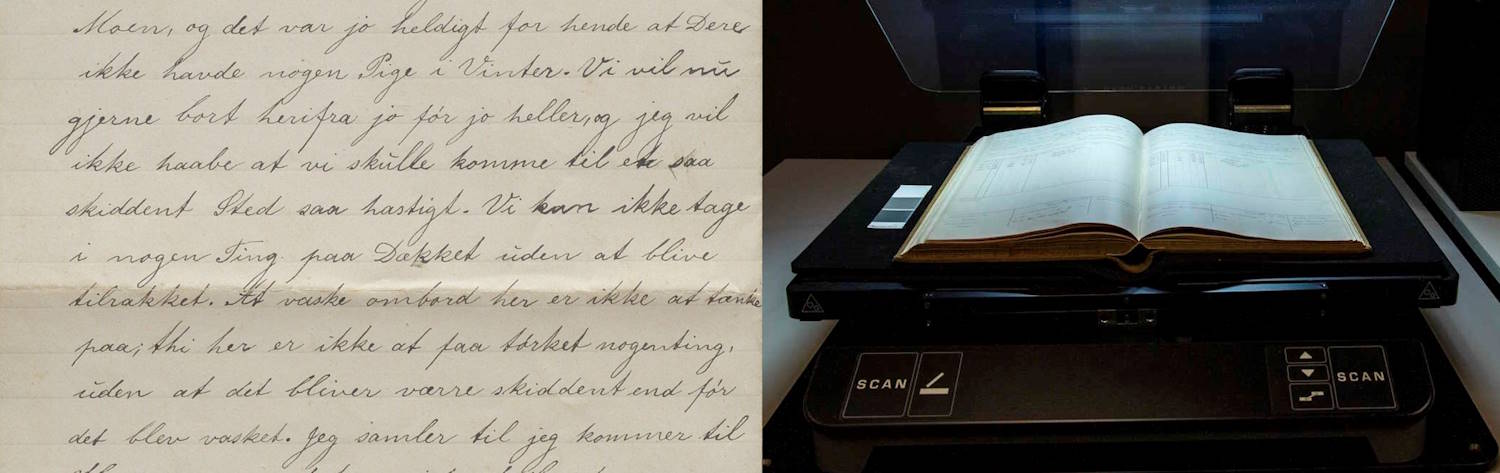 Moen, og det var jo heldigt for hende at Dere
ikke havde nogen Pige i Vinter. Vi vil nu
gjerne bort herifra jo för jo heller, og jeg vil
ikke haabe at vi skulle komme til et saa
skiddent Sted saa hastigt. Vi kan ikke tage
i nogen Ting paa Dækket uden at blive
tilrakket. At vaske ombord her er ikke at tænke
paa; thi her er ikke at faa törket nogenting,
uden at det bliver værre skiddent end för
det blev vasket. Jeg samler til jeg kommer til
SCAN
SCAN